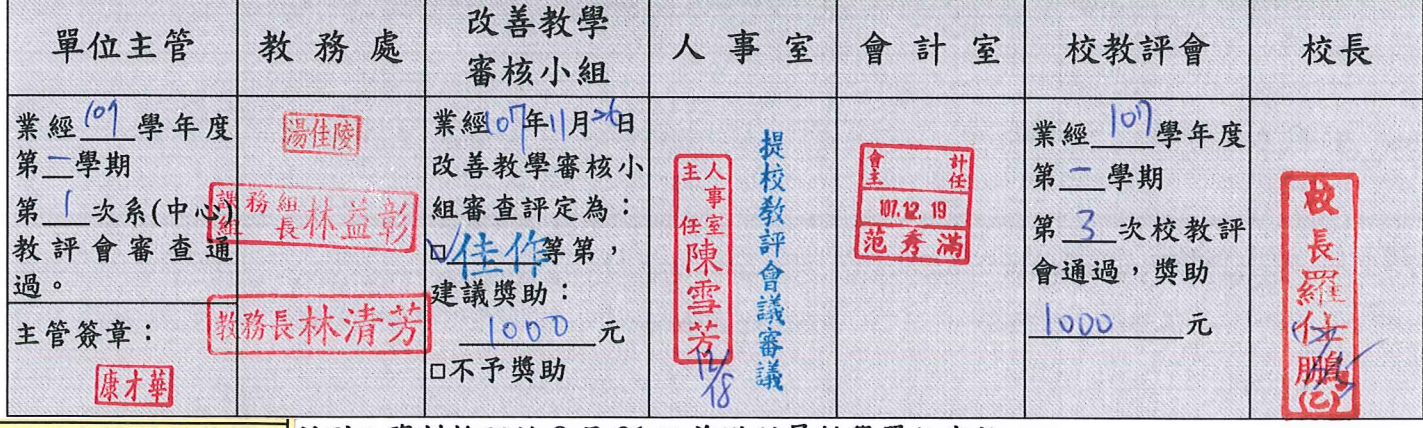 單位主管
教務處
改善教學
審核小組
人事室
會計室
校教評會
校長
業經107學年度
第一學期
第1次系(中心)
教評會審查通
過。
主管簽章：
康才華
湯佳陵
課務組
組長林益彰
教務長林清芳
業經107年11月26日
改善教學審核小
組審查評定為：
□佳作等第，
建議獎助：
1000元
□不予獎助
人事室
主任陳雪芳
12/18
提校教評會議審議
會計
主任
107.12.19
范秀滿
業經107學年度
第一學期
第3次校教評
會通過，獎助
1000元
校長羅仕鵬(乙)